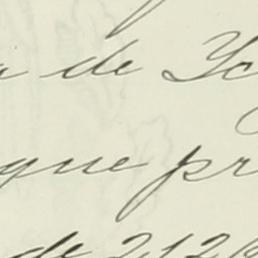 de Yo
que pr
de 212